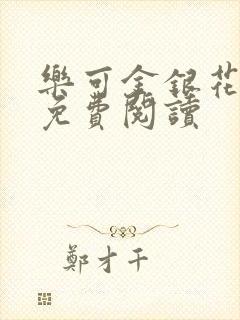 樂可金銀花
免費閱讀
鄭才千